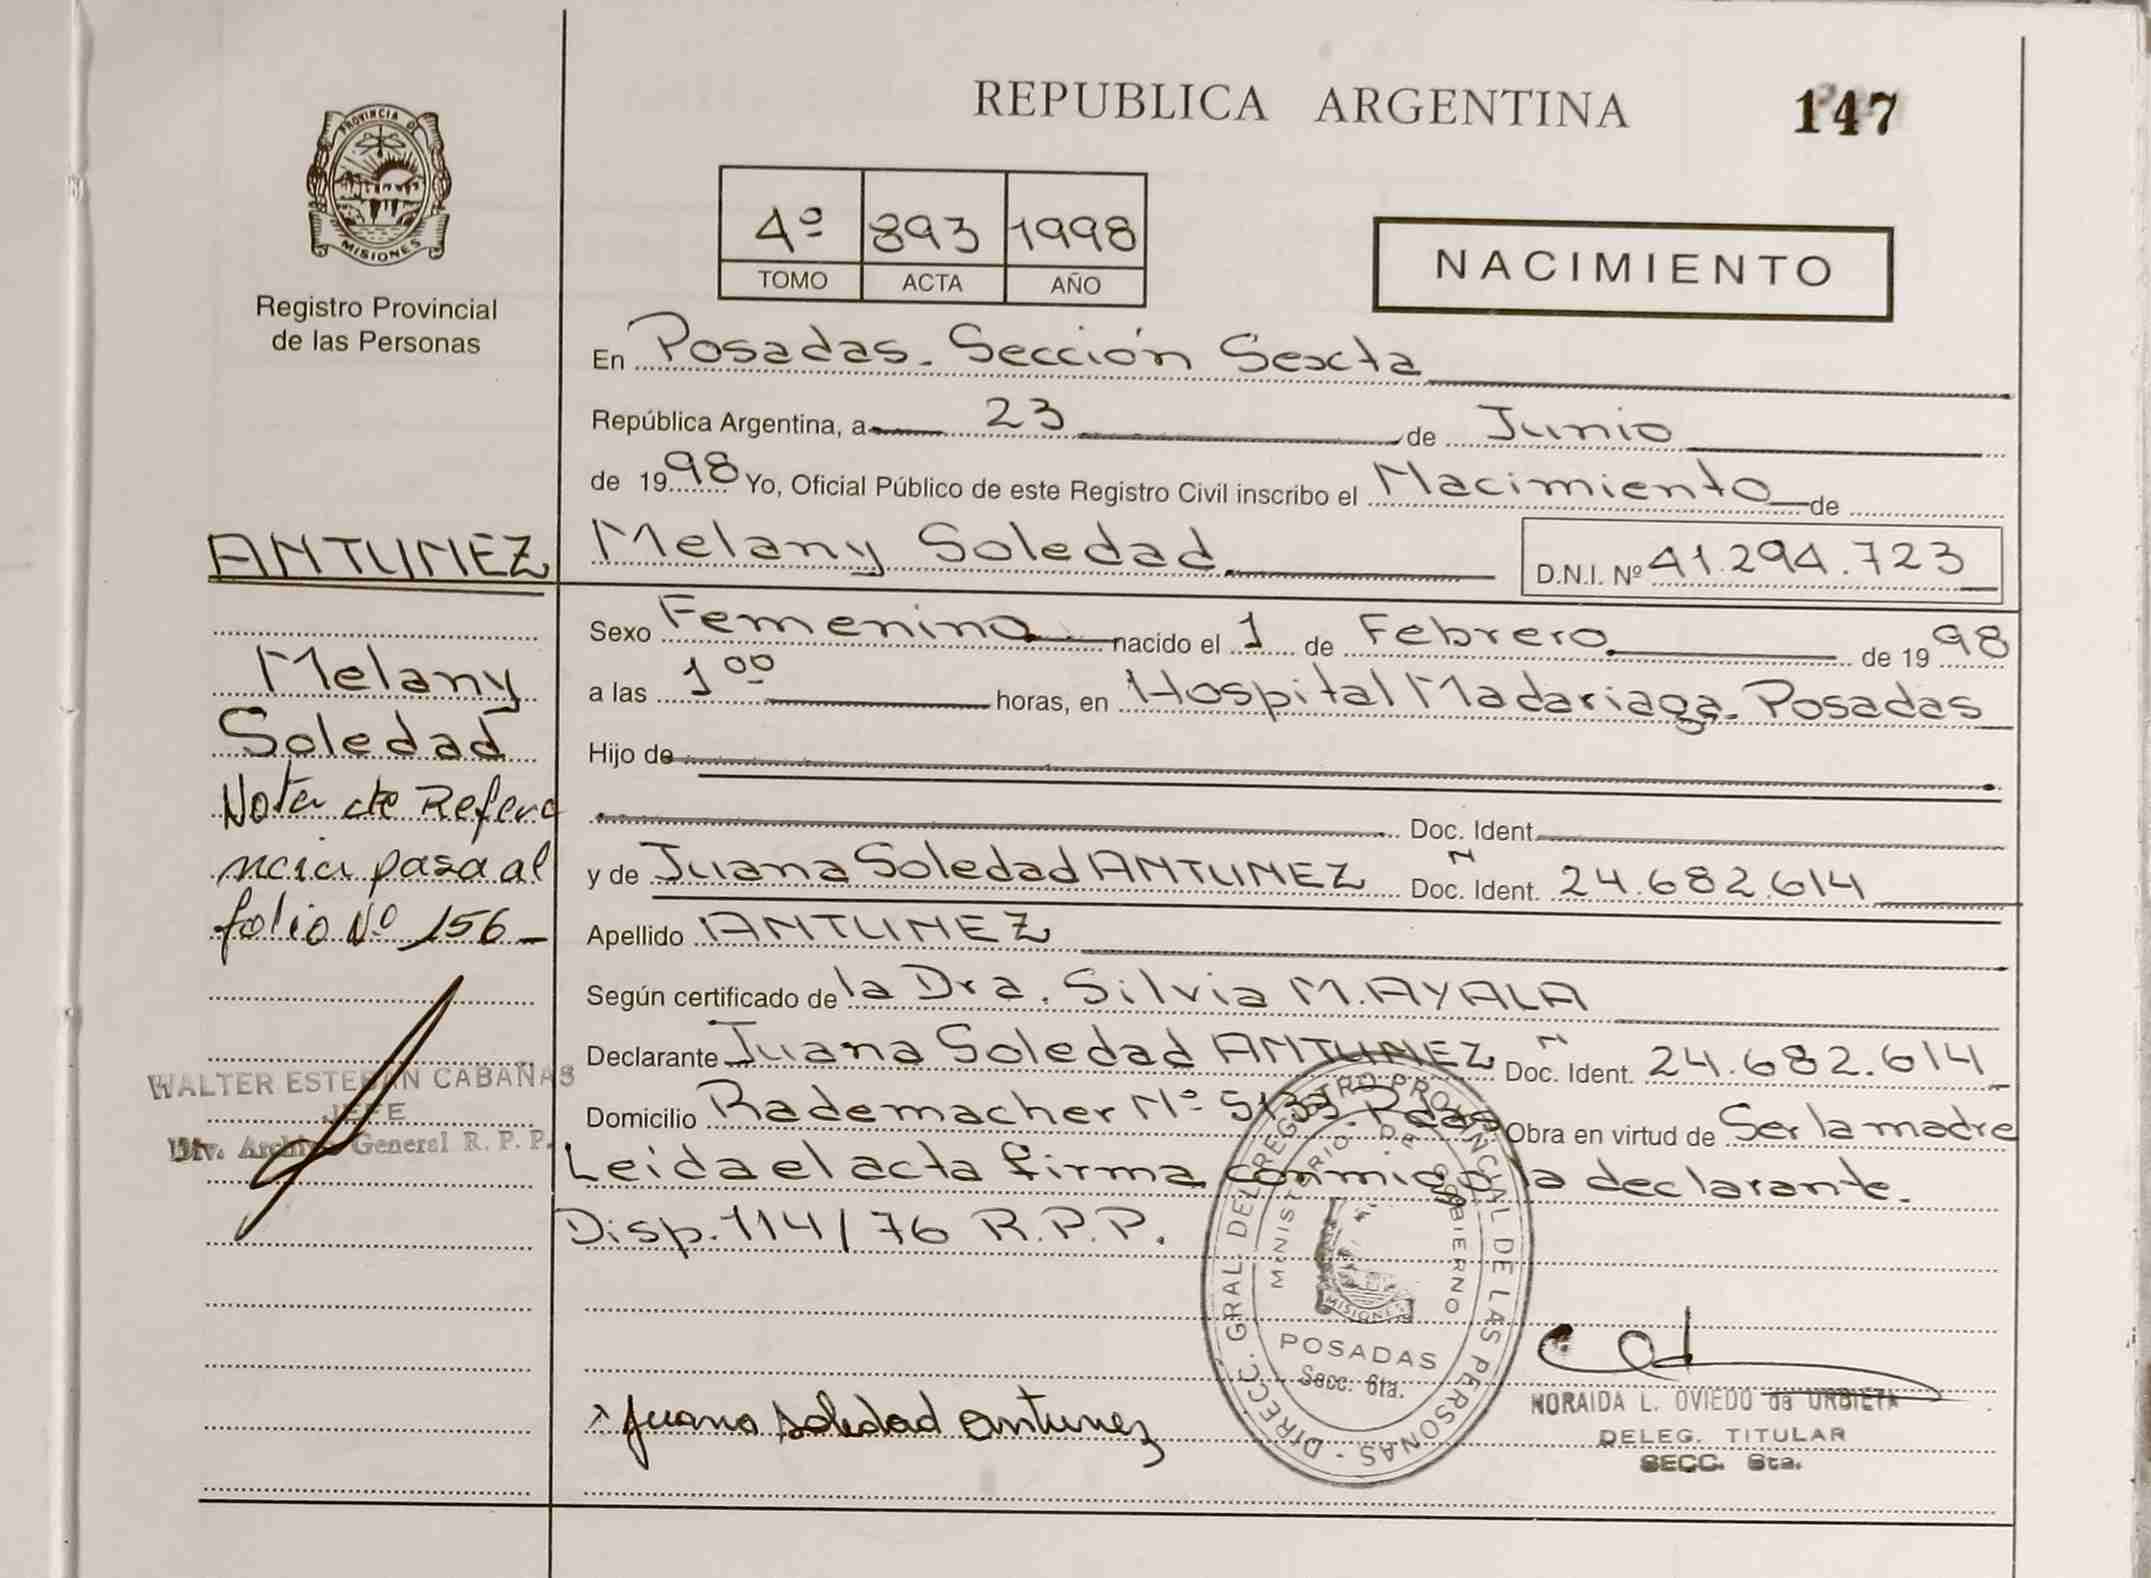 REPUBLICA ARGENTINA
147
PROVINCIA DE
MISIONES
Registro Provincial
de las Personas
4º 893 1998
TOMO ACTA AÑO
NACIMIENTO
En Posadas. Sección Sexta
República Argentina, a 23 de Junio
de 1998 Yo, Oficial Público de este Registro Civil inscribo el Nacimiento de
ANTUNEZ
Melany Soledad
D.N.I. Nº 41.294.723
Sexo Femenino nacido el 1 de Febrero de 1998
a las 1 00 horas, en Hospital Madariaga. Posadas
Hijo de
Doc. Ident.
y de Juana Soledad ANTUNEZ Doc. Ident. N 24.682.614
Apellido ANTUNEZ
Según certificado de la Dra. Silvia M. AYALA
Declarante Juana Soledad ANTUNEZ Doc. Ident. N 24.682.614
Domicilio Rademacher Nº Pdas Obra en virtud de Ser la madre
Leida el acta firma conmigo la declarante.
Disp. 114/76 R.P.P.
Melany
Soledad
Nota de Refere
ncia pasa al
folio Nº 156
WALTER ESTEBAN CABAÑAS
JEFE
Div. Archivo General R. P. P.
DIRECC. GRAL. DEL REGISTRO PROVINCIAL DE LAS PERSONAS
MINISTERIO DE GOBIERNO
MISIONES
POSADAS
Secc. 6ta.
x Juana Soledad Antunez
NORAIDA L. OVIEDO de URBIETA
DELEG. TITULAR
SECC. 6ta.